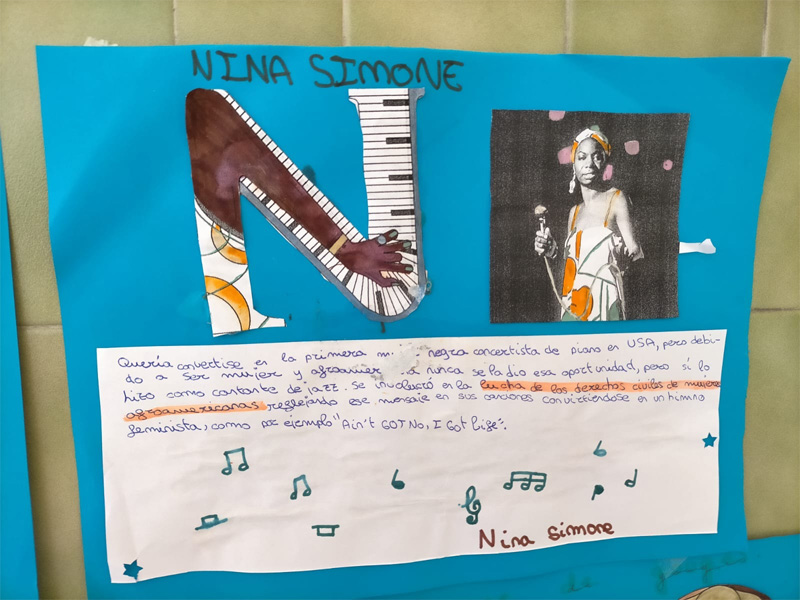 NINA SIMONE
Quería convertise en la primera negra concertista de piano en USA, pero debi-
do a ser mujer y nunca se la dio esa oportunidad, pero si lo
hizo como cantante de jazz. Se involucró en la lucha de los derechos civiles de mujeres
afroamericanas reflejando ese mensaje en sus canciones conviztiéndose en un himno
feminista, como por ejemplo "Ain't GOT No, I Got Life".
Nina Simone